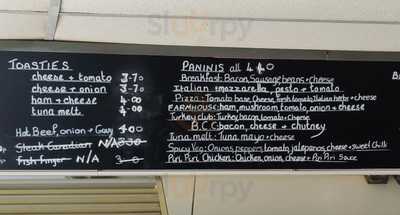 TOASTIES
cheese + tomato 3-70
cheese + onion 3-70
ham + cheese 4-00
tuna melt 4-00
Hot Beef, onion + Gravy
Steak Canadian N/A 3-30
fish finger N/A
PANINIS all 4
Breakfast: Bacon, Sausage, beans + cheese
Italian: mozzarella, pesto + tomato
Pizza: Tomato base, Cheese, fresh tomato, Italian herbs + cheese
FARMHOUSE: ham, mushroom, tomato, onion + cheese
Turkey club: Turkey, bacon, tomato + cheese
B.C.C: bacon, cheese + chutney
Tuna melt: Tuna, mayo + cheese
Spicy Veg: Onions, peppers, tomato, jalapenos, cheese + sweet Chilli
Piri Piri Chicken: Chicken, onion, cheese + Piri Piri Sauce
B